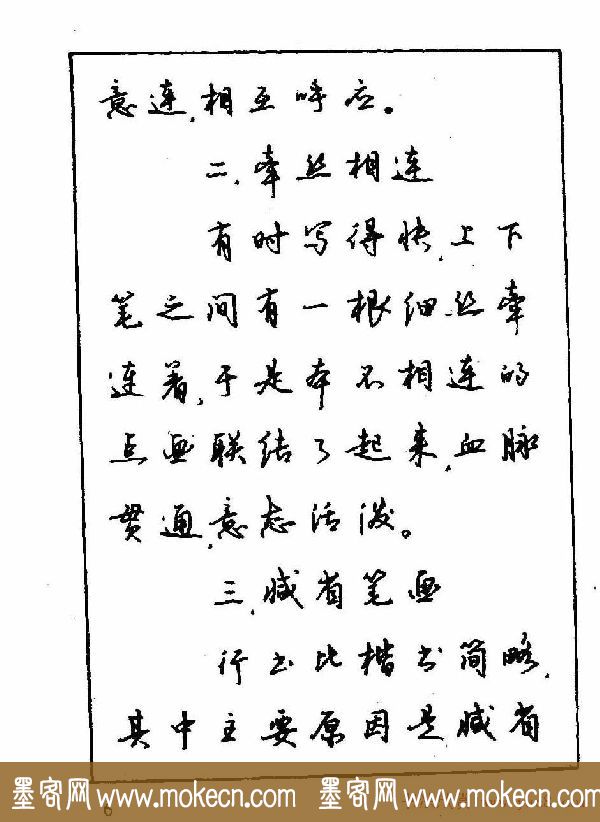 意连,相互呼应。
二、牵丝相连
有时写得快,上下
笔之间有一根细丝牵
连着,于是本不相连的
点画联结了起来,血脉
贯通,意态活泼。
三、减省笔画
行书比楷书简略,
其中主要原因是减省
墨客网 www.mokecn.com 墨客网 www.mokecn.com
6